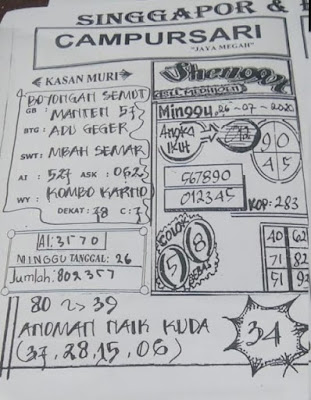 SINGGAPOR &
CAMPURSARI
"JAYA MEGAH"
KASAN MURI
BOYONGAN SEMUT
GB : MANTEN 57
BTG : ADU GEGER
SWT : MBAH SEMAR
AI : 527 ASK : 062
WY : KOMBO KARNO
DEKAT : 78 C : 7
AI : 3170
MINGGU TANGGAL : 26
Jumlah : 802357
Minggu, 26-07-2020
ANGKA
IKUT
90
45
567890
012345
KOP : 283
COLOK
5 8
BEBAS
40 62
71 82
51 93
80 ~> 39
ANOMAN NAIK KUDA
(37, 28, 15, 06)
34